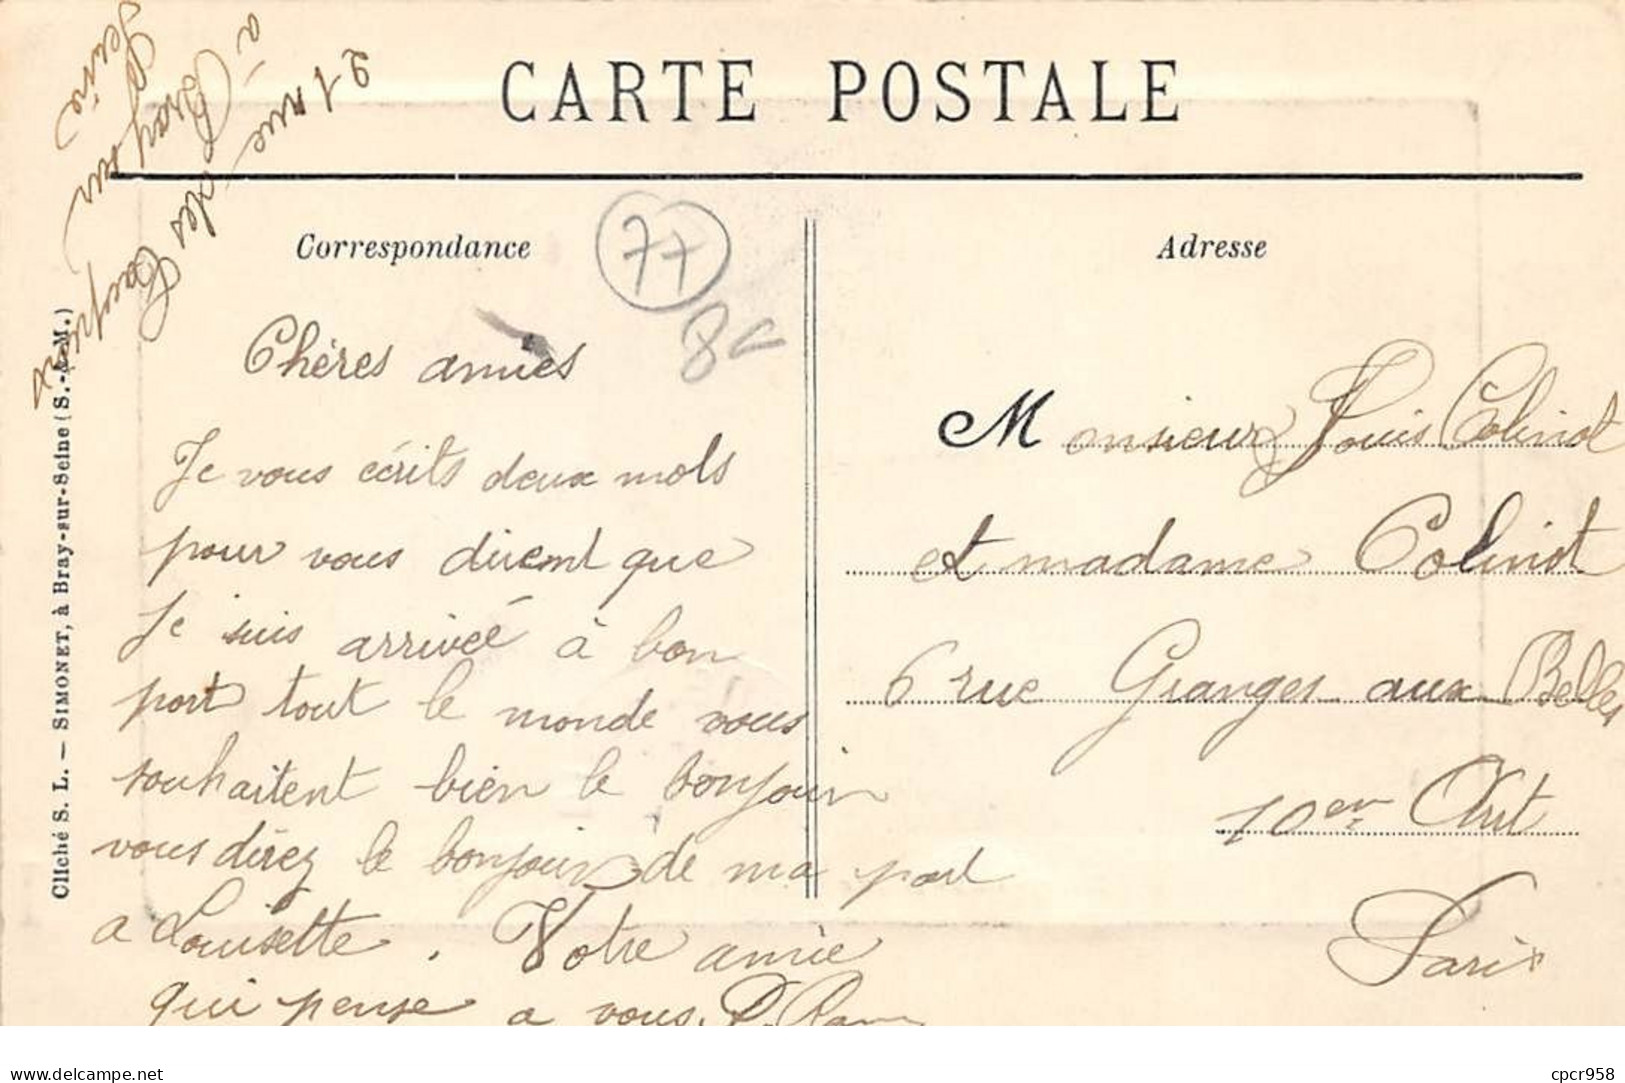 CARTE POSTALE
Correspondance
Adresse
77
8
21 rue des
à Bray sur
Seine
Cliché S. L. — SIMONET, à Bray-sur-Seine (S.-&-M.)
Chères amies
Je vous écrits deux mots
pour vous dirent que
Je suis arrivée à bon
port tout le monde vous
souhaitent bien le bonjour
vous direz le bonjour de ma part
a Louisette. Votre amie
qui pense a vous.
Monsieur Louis Colinot
et madame Colinot
6 rue Granges aux Belles
10em Arrt
Paris
delcampe.net
cpcr958